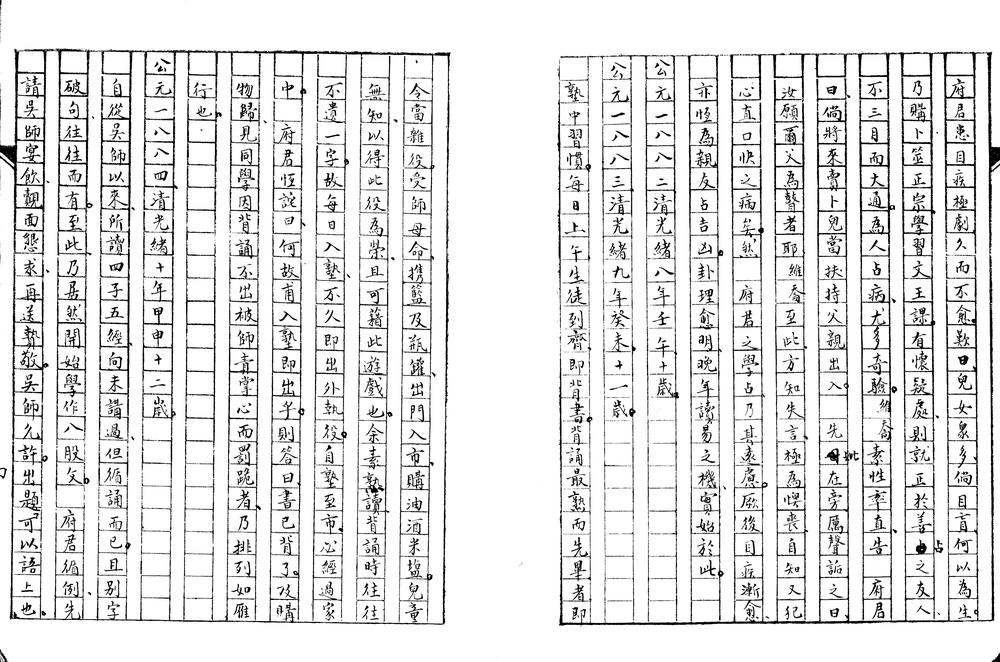 府君患目疾極劇久而不愈歎曰兒女衆多倘目盲何以為生。
乃購卜筮正宗學習文王課。有懷疑處則就正於善占之友人、
不三月而大通。為人占病、尤多奇驗。維喬素性率直告　府君
曰、倘將來賣卜兒當扶持父親出入。　先妣在旁厲聲詬之曰、
汝願爾父為瞽者耶維喬至此方知失言、極為懊喪、自知又犯
心直口快之病矣。然　府君之學占乃其遠慮。厥後目疾漸愈、
亦恆為親友占吉凶卦理愈明、晚年讀易之機實始於此。
公元一八八二清光緒八年壬午十歲。
公元一八八三清光緒九年癸未十一歲。
塾中習慣。每日上午生徒到齊、即背書。背誦最熟而先畢者即
令當雜役。受師母命携籃及瓶罐出門入市、購油酒米鹽。兒童
無知以得此役為榮、且可藉此遊戲也。余素熟讀背誦時往往
不遺一字。故每日入塾、不久即出外執役。自塾至市、必經過家
中。　府君恆詫曰、何故甫入塾即出乎。則答曰書已背了。及購
物歸、見同學因背誦不出被師責掌心而罰跪者、乃排列如雁
行也。
公元一八八四清光緒十年甲申十二歲。
自從吳師以來、所讀四子五經、向未講過但循誦而已。且別字
破句、往往而有。至此、乃居然開始學作八股文。　府君循例、先
請吳師宴飲、覿面懇求、再送贄敬。吳師允許出題、可以語上也。